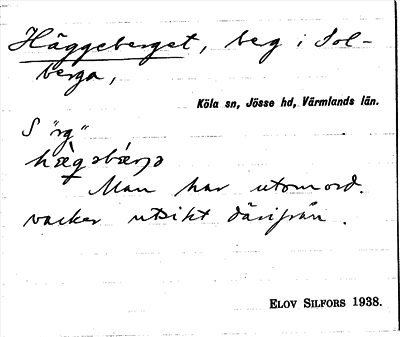 Häggeberget, beg i Sol-
berga,
Köla sn, Jösse hd, Värmlands län.
S "rg"
Man har utomord.
vacker utsikt därifrån.
ELOV SILFORS 1938.